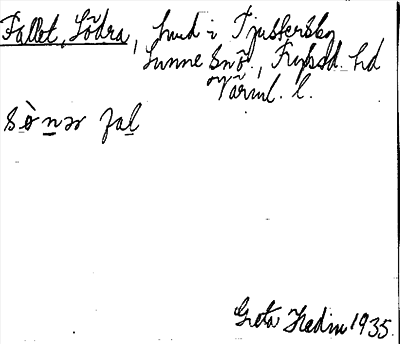 Fallet, Södra, hmd i Tjusterskog
Sunne Snö., Fryksd. hd
Värml. l.
sò̱ṉər faḻ
Greta Hedin 1935.